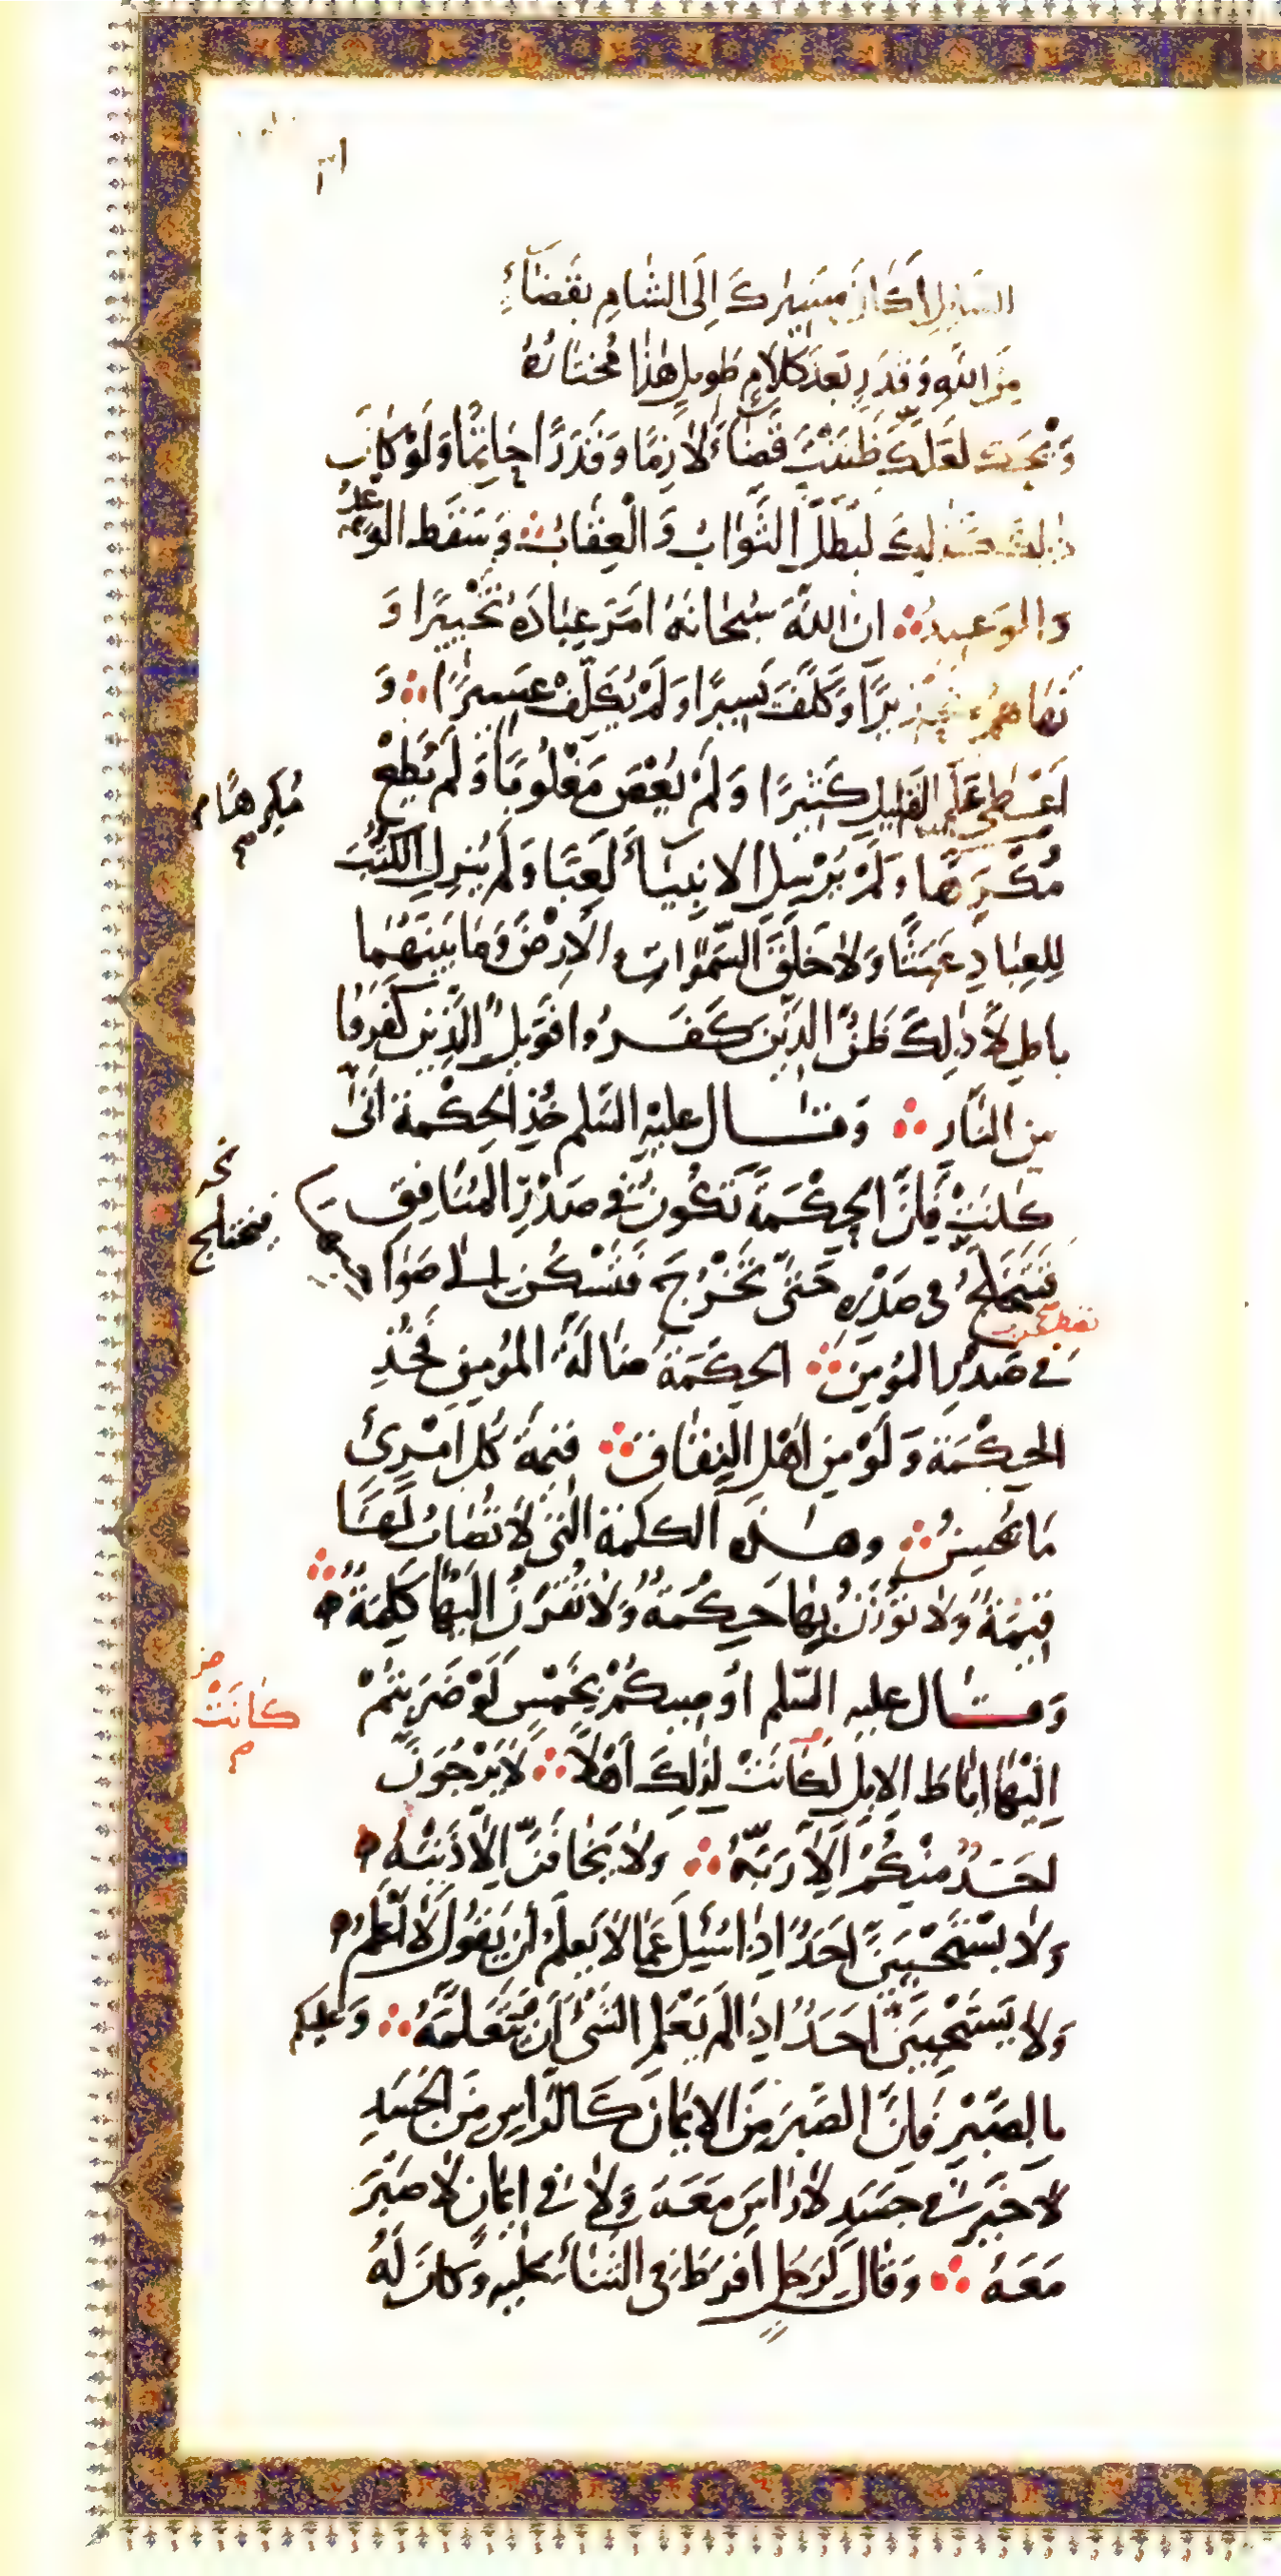 السايل أكان مسيرك إلى الشام بقضاءٍ
من الله وقدر بعد كلام طويل هذا مختاره
ويحك لعلك ظننت قضاءً لازمًا وقدرًا حاتمًا ولو كان
ذلك كذلك لبطل الثواب والعقاب ∴ وسقط الوعد
والوعيد ∴ ان الله سبحانه امر عباده تخييرًا و
نهاهم تحذيرًا وكلف يسيرًا ولم يكلف عسيرًا ∴ و
اعطى على القليل كثيرًا ولم يعص مغلوبًا ولم يطع
مكرهًا م
مكرهًا ولم يرسل الانبياء لعبًا ولم ينزل الكتب
للعباد عبثًا ولا خلق السموات والارض وما بينهما
باطلًا ذلك ظن الذين كفروا فويل للذين كفروا
من النار ∴ وقال عليه السلم خذ الحكمة انى
كانت فإن الحكمة تكون في صدر المنافق
فتختلج
فتتخلج في صدره حتى تخرج فتسكن الى صواحبها
في صدر المؤمن ∴ الحكمة ضالة المؤمن فخذ
الحكمة ولو من اهل النفاق ∴ قيمة كل امرئ
ما يحسن ∴ وهذه الكلمة التي لا تصاب لها
قيمة ولا توزن بها حكمة ولا تقرن اليها كلمة ∴
وقال عليه السلم أوصيكم بخمس لو ضربتم
كانت
م
إليها اباط الابل لكانت لذلك أهلًا ∴ لا يرجون
احد منكم إلا ربه ∴ ولا يخافن إلا ذنبه
ولا يستحيين احد اذا سئل عما لا يعلم أن يقول لا أعلم
ولا يستحيين احد اذا لم يعلم الشيء أن يتعلمه ∴ وعليكم
بالصبر فإن الصبر من الايمان كالراس من الجسد
لا خير في جسد لا راس معه ولا في ايمان لا صبر
معه ∴ وقال لرجل افرط في الثناء عليه وكان له